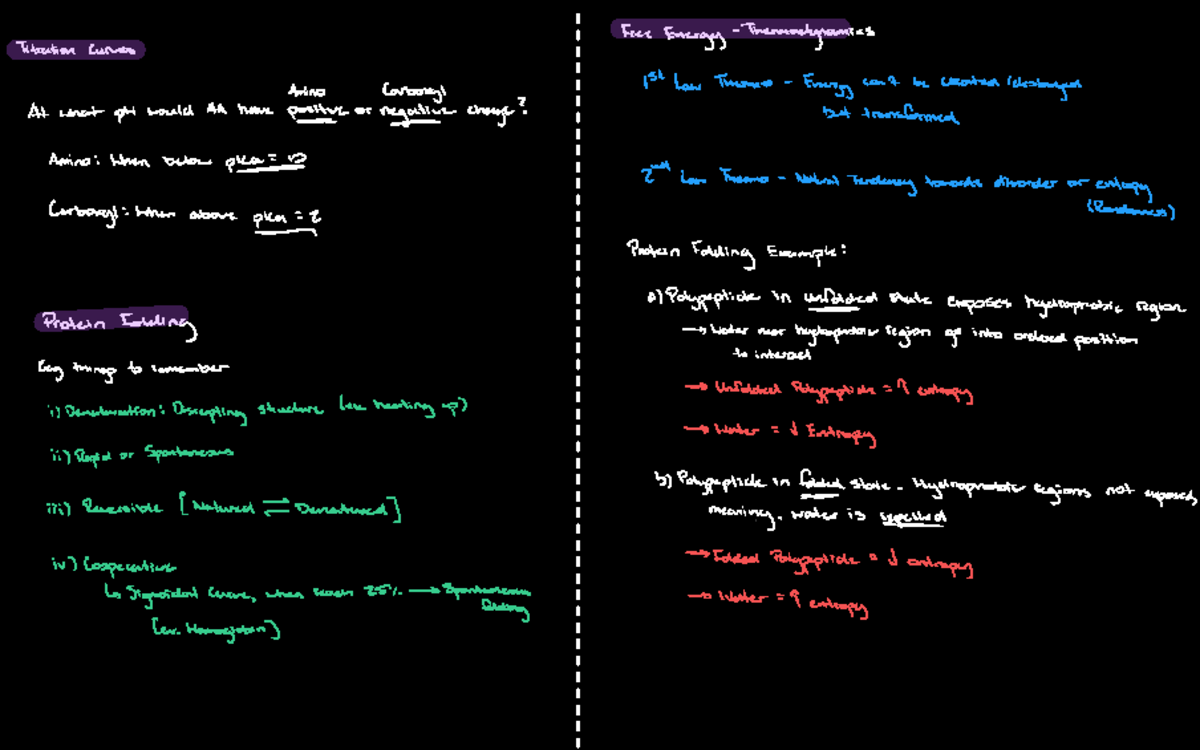 Titration Curves
Amino Carboxyl
At what pH would AA have positive or negative charge?
Amino: When below pKa = 10
Carboxyl: When above pKa = 2
Protein Folding
Key things to remember
i) Denaturation: Disrupting structure (ex. heating up)
ii) Rapid or Spontaneous
iii) Reversible [Natured ⇌ Denatured]
iv) Cooperative
↳ Sigmoidal Curve, when reach 25% → Spontaneous
folding
[ex. Hemoglobin]
Free Energy - Thermodynamics
1st Law Thermo - Energy can't be created/destroyed
but transformed
2nd Law Thermo - Natural Tendency towards disorder or entropy
(Randomness)
Protein Folding Example:
a) Polypeptide in unfolded state exposes hydrophobic region
→ Water near hydrophobic region go into ordered position
to interact
→ Unfolded Polypeptide = ↑ entropy
→ Water = ↓ Entropy
b) Polypeptide in folded state - Hydrophobic regions not exposed,
meaning, water is repelled
→ Folded Polypeptide = ↓ entropy
→ Water = ↑ entropy